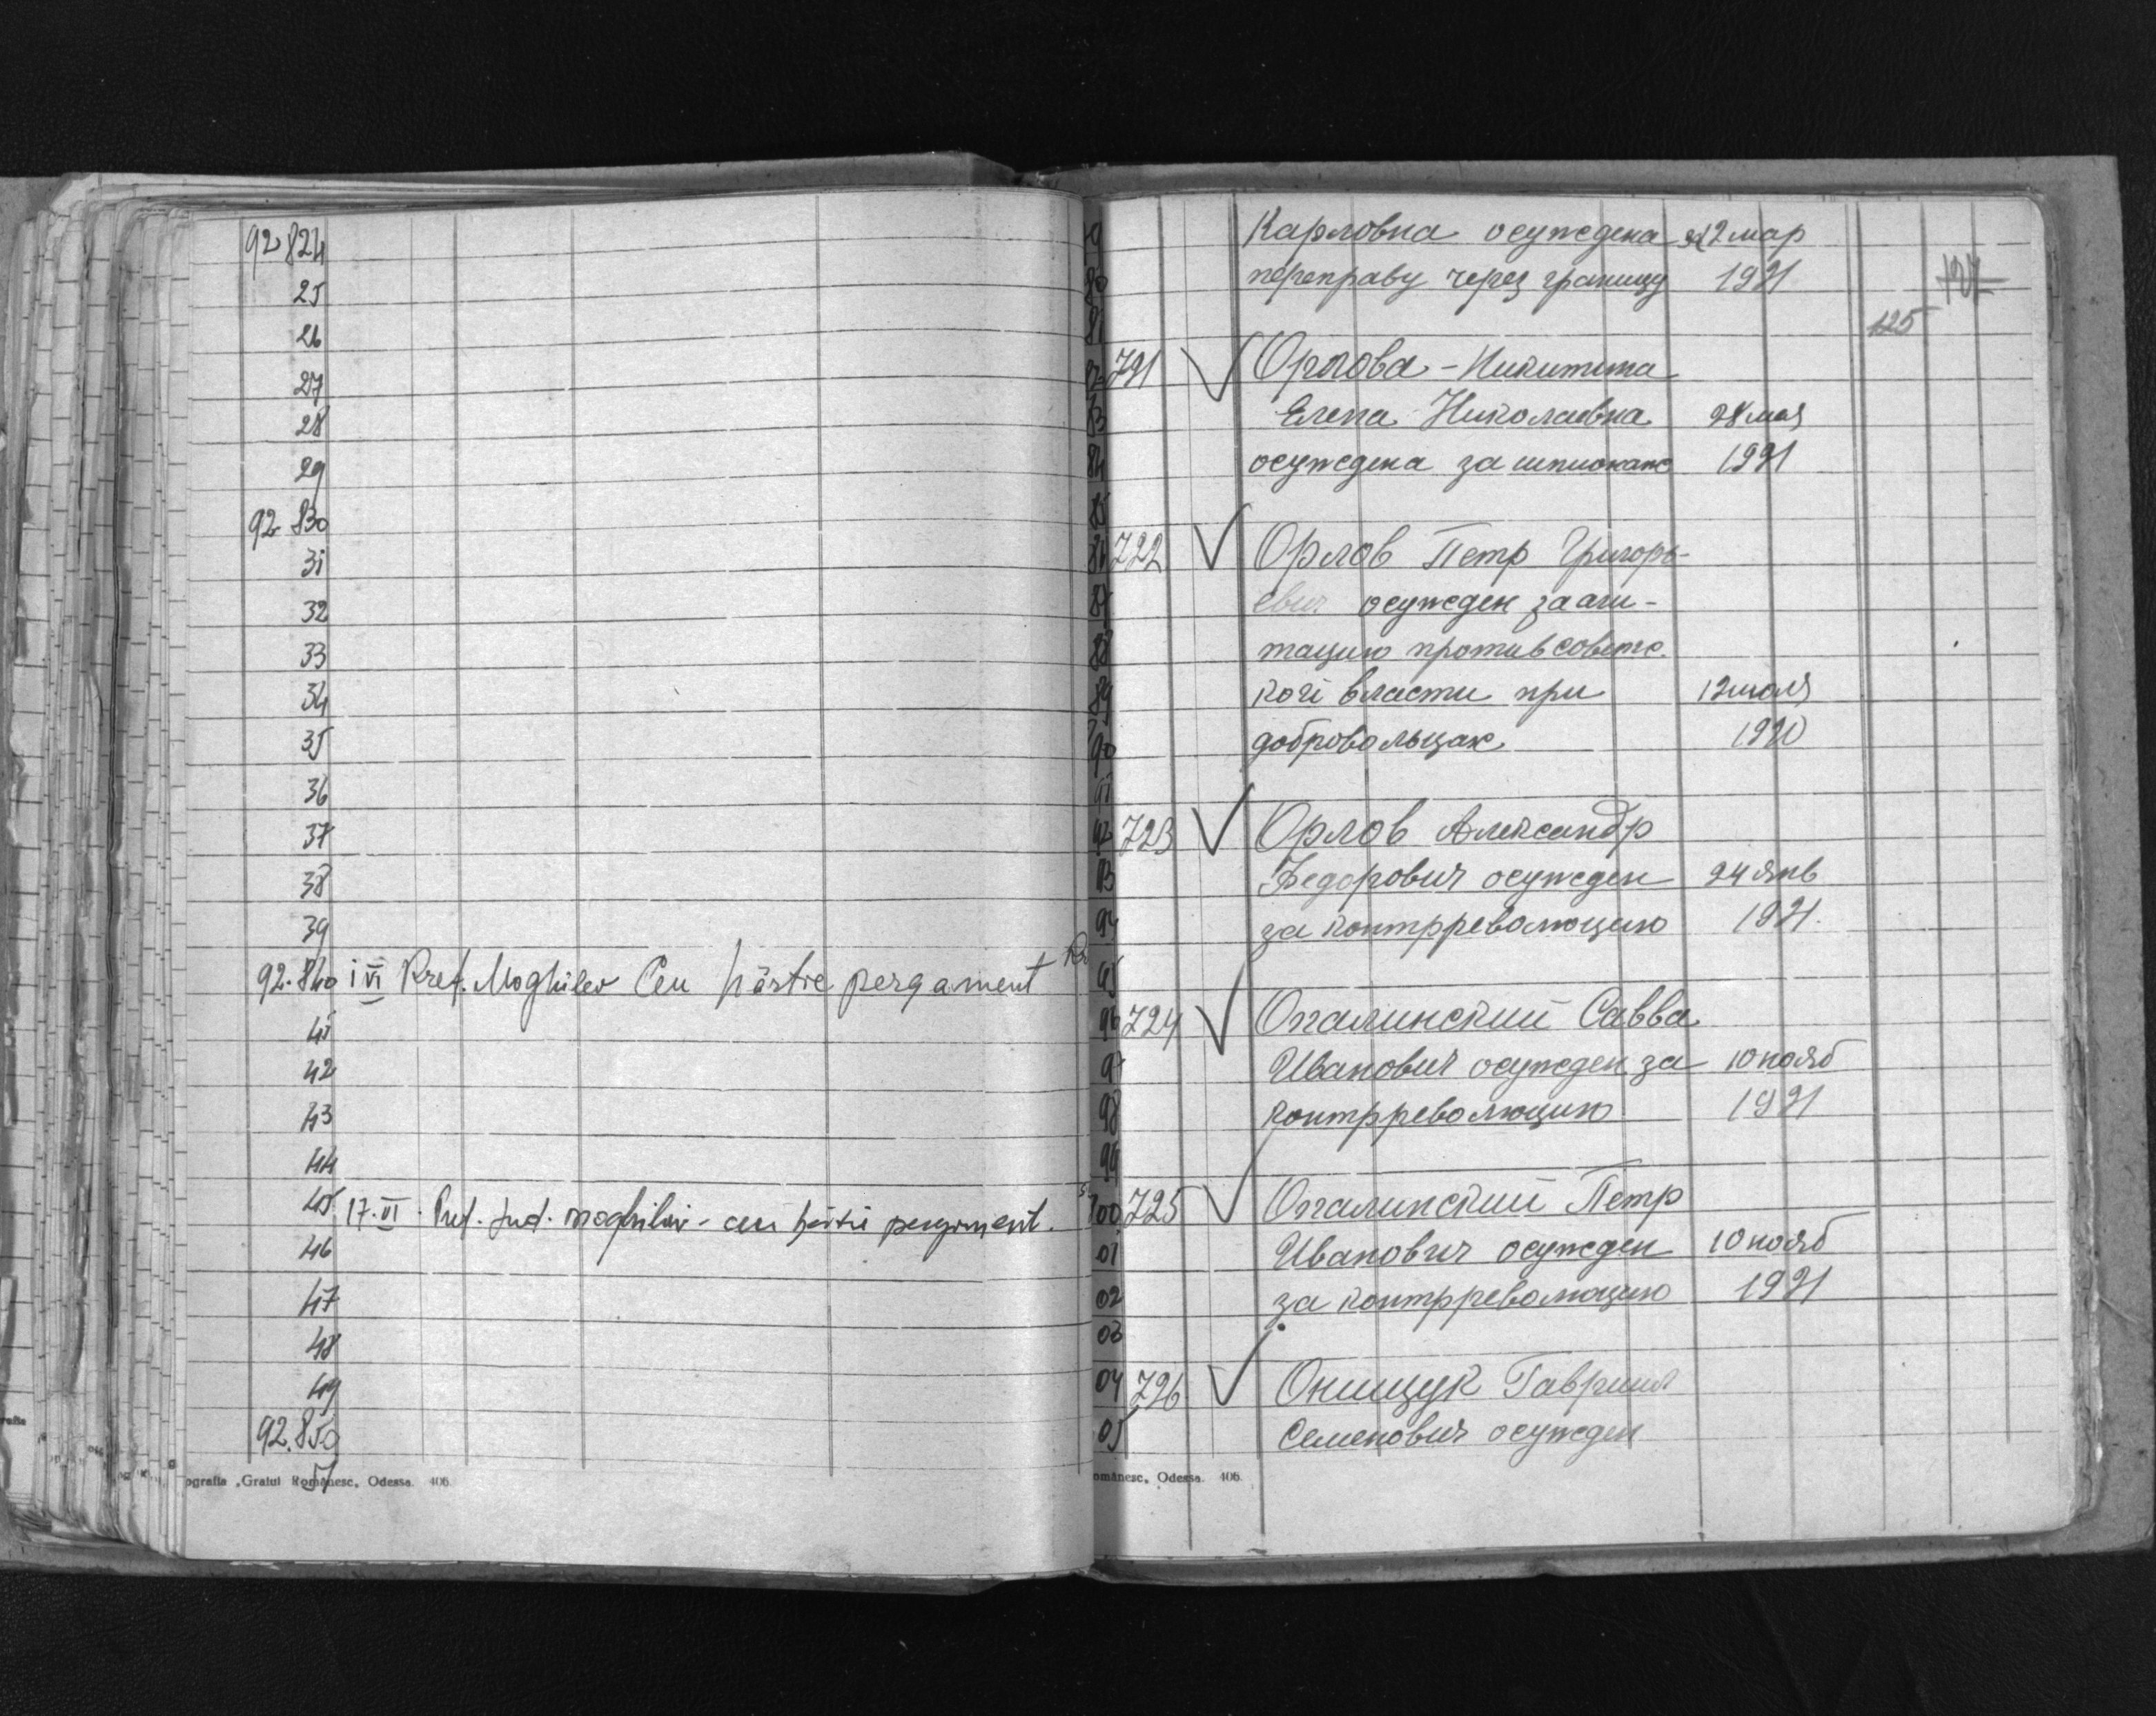 92 824
25
26
27
28
29
92 830
31
32
33
34
35
36
37
38
39
92.840 1 VI Pref. Moghilev Cer hârtie pergament
41
42
43
44
45 17.VI. Pref. Jud. Moghilău - cer hârtie pergament.
46
47
48
49
92.850
51
ografia „Graiul Românesc„ Odessa. 406.
125
Карловна осуждена за 12 мар
переправу через границу 1921
721 Орлова - Никитина
Елена Николаевна 28 мая
осуждена за шпионаж 1921
722 Орлов Петр Григорь-
евич осуждён за аги-
тацию против советс.
кой власти при 12 июля
добровольцах 1920
723 Орлов Александр
Федорович осужден 24 янв
за контрреволюцию 1921.
724 Опалинский Савва
Иванович осужден за 10 нояб
контрреволюцию 1921
725 Опалинский Петр
Иванович осужден 10 нояб
за контрреволюцию 1921
726 Онищук Гавриил
Семенович осужден
omânesc„ Odessa. 406.